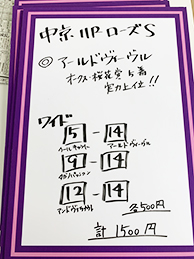 中京11R ローズS
◎ アールドヴィーヴル
オークス・桜花賞5着
実力上位!!
ワイド
5 - 14
アールドヴィーヴル
9 - 14
12 - 14
アンドヴァラナウト
各500円
計 1500円